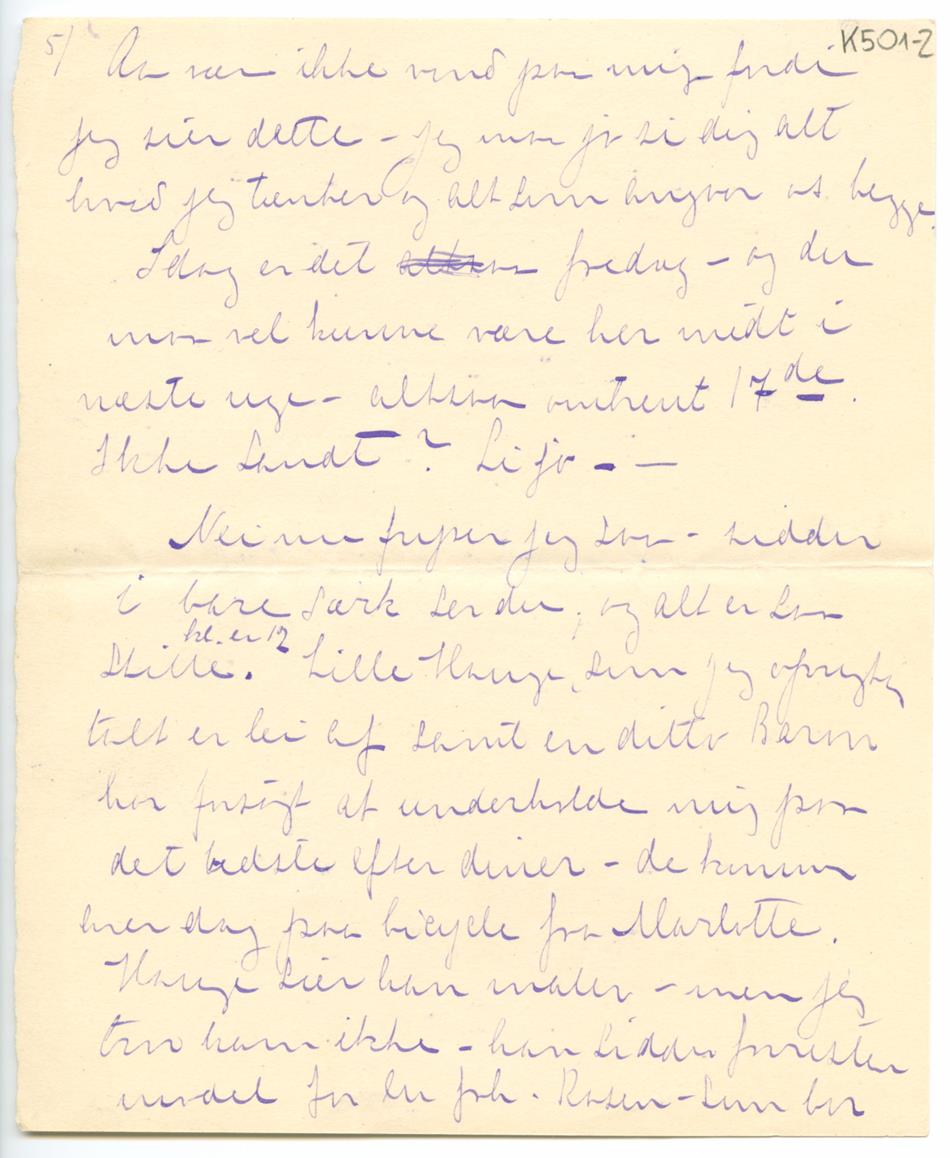 5/ K501-2
Aa vær ikke vred paa mig fordi
jeg siér dette – jeg maa jo si dig alt
hvad jeg tænker og alt som angaar os begge.
Idag er det altsaa fredag – og du
maa vel kunne være her midt i
næste uge – altsaa omtrent 17de.
Ikke Sandt? Si jo – –
Nei nu fryser jeg saa – sidder
i bare særk ser du, og alt er saa
kl. er 12
stille. Lille Hauge, som jeg oprigtig
talt er lei af samt en ditto Baron
har forsøgt at underholde mig paa
det bedste efter diner – de kommer
hver dag paa bicycle fra Marlotte.
Hauge siér han maler – men jeg
tror ham ikke – han sidder forresten
model for en frk. Rosen – som bor